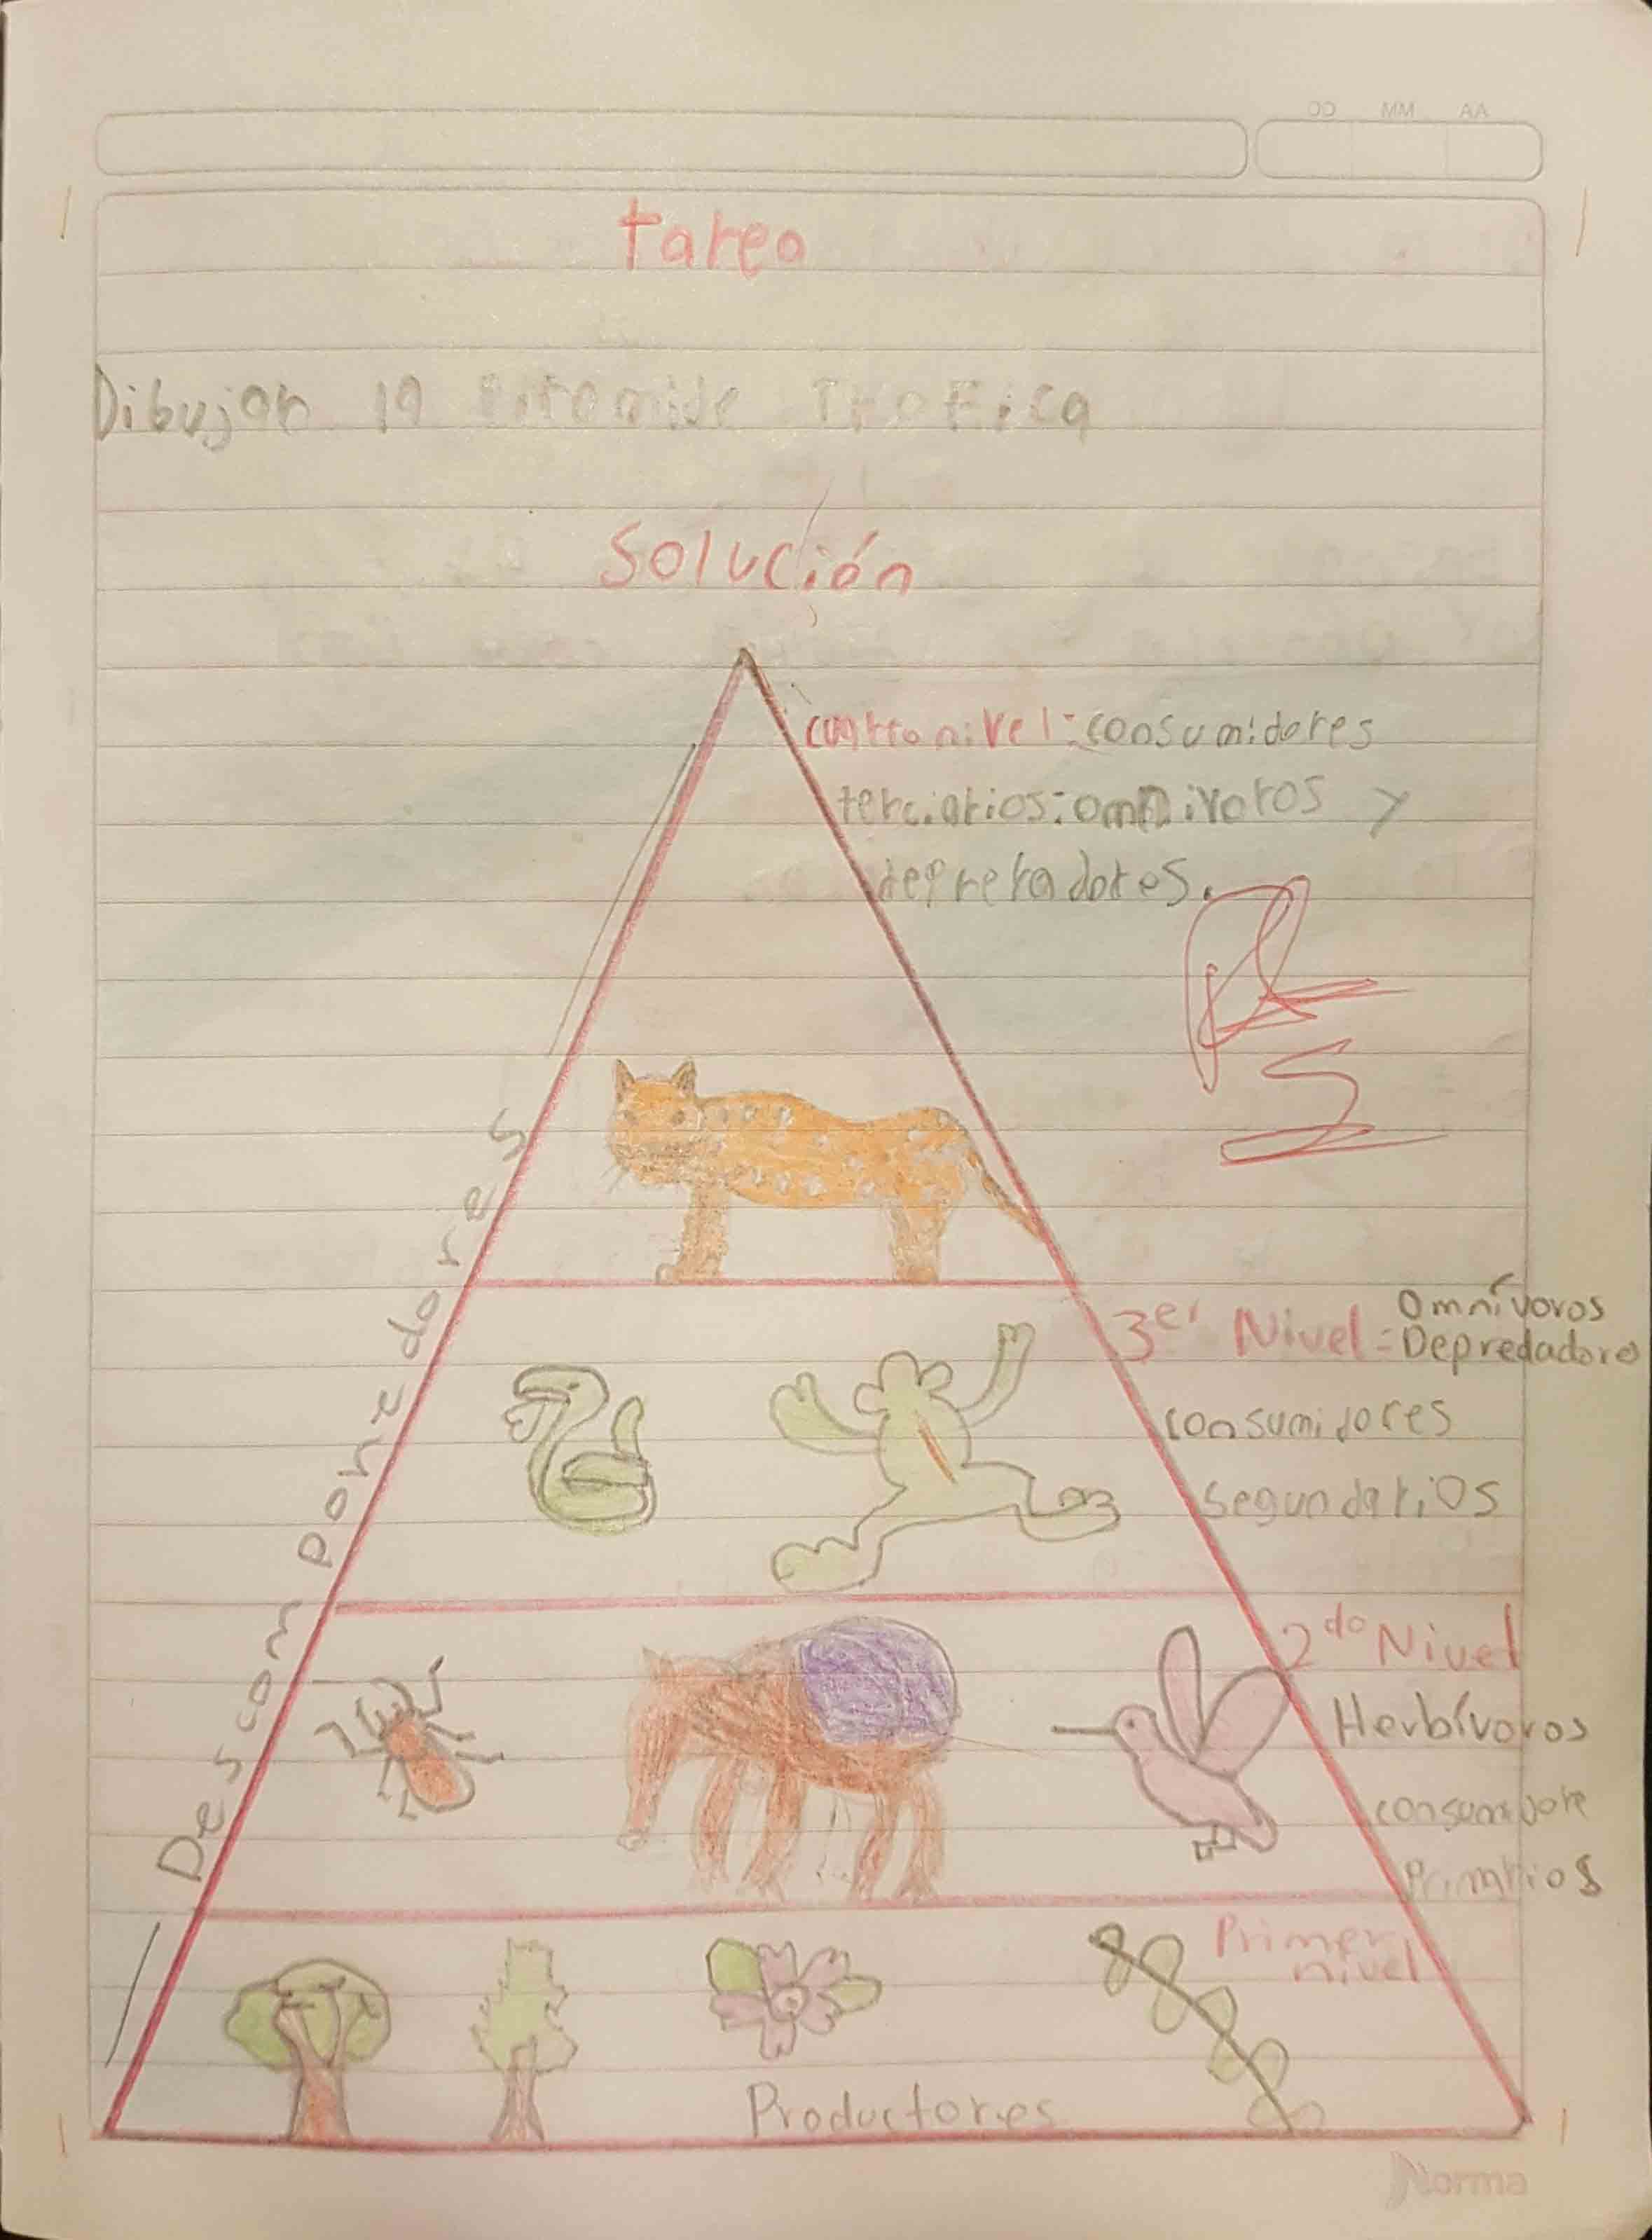 AA MM DD
tarea
Dibujar la Piramide Trofica
Solución
cuarto nivel: consumidores
terciarios: omnivoros y
depreradores.
5
Descomponedores
3er Nivel = Omnívoros
Depredadores
consumidores
segundarios
2do Nivel
Herbívoros
consumidore
Primarios
Primer
nivel
Productores
Norma